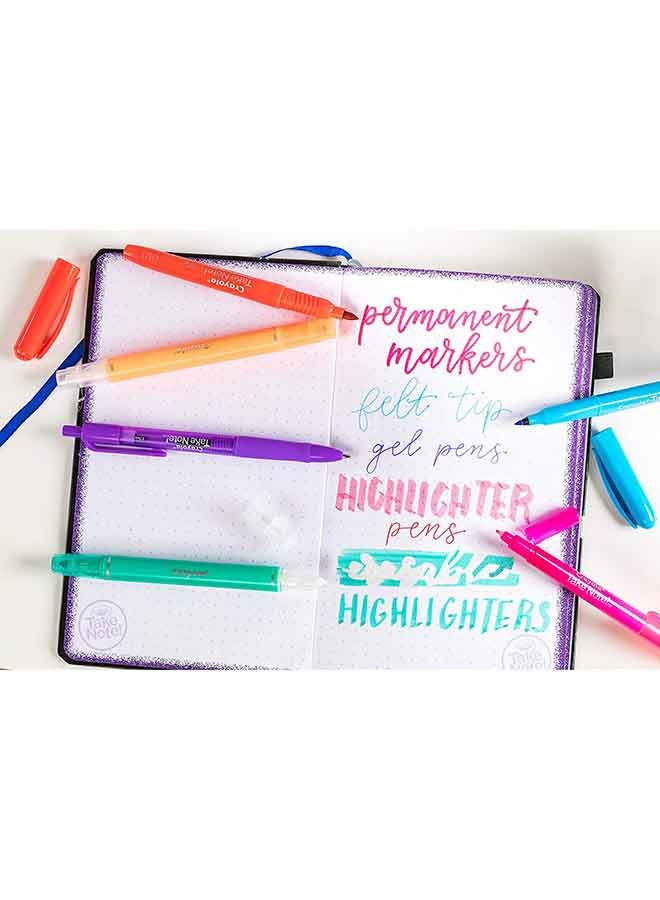 permanent
markers
felt tip
gel pens
HIGHLIGHTER
pens
erasable
HIGHLIGHTERS
Crayola
Take Note!
Crayola
Take Note!
Take Note!
Take
Note!
Take
Note!